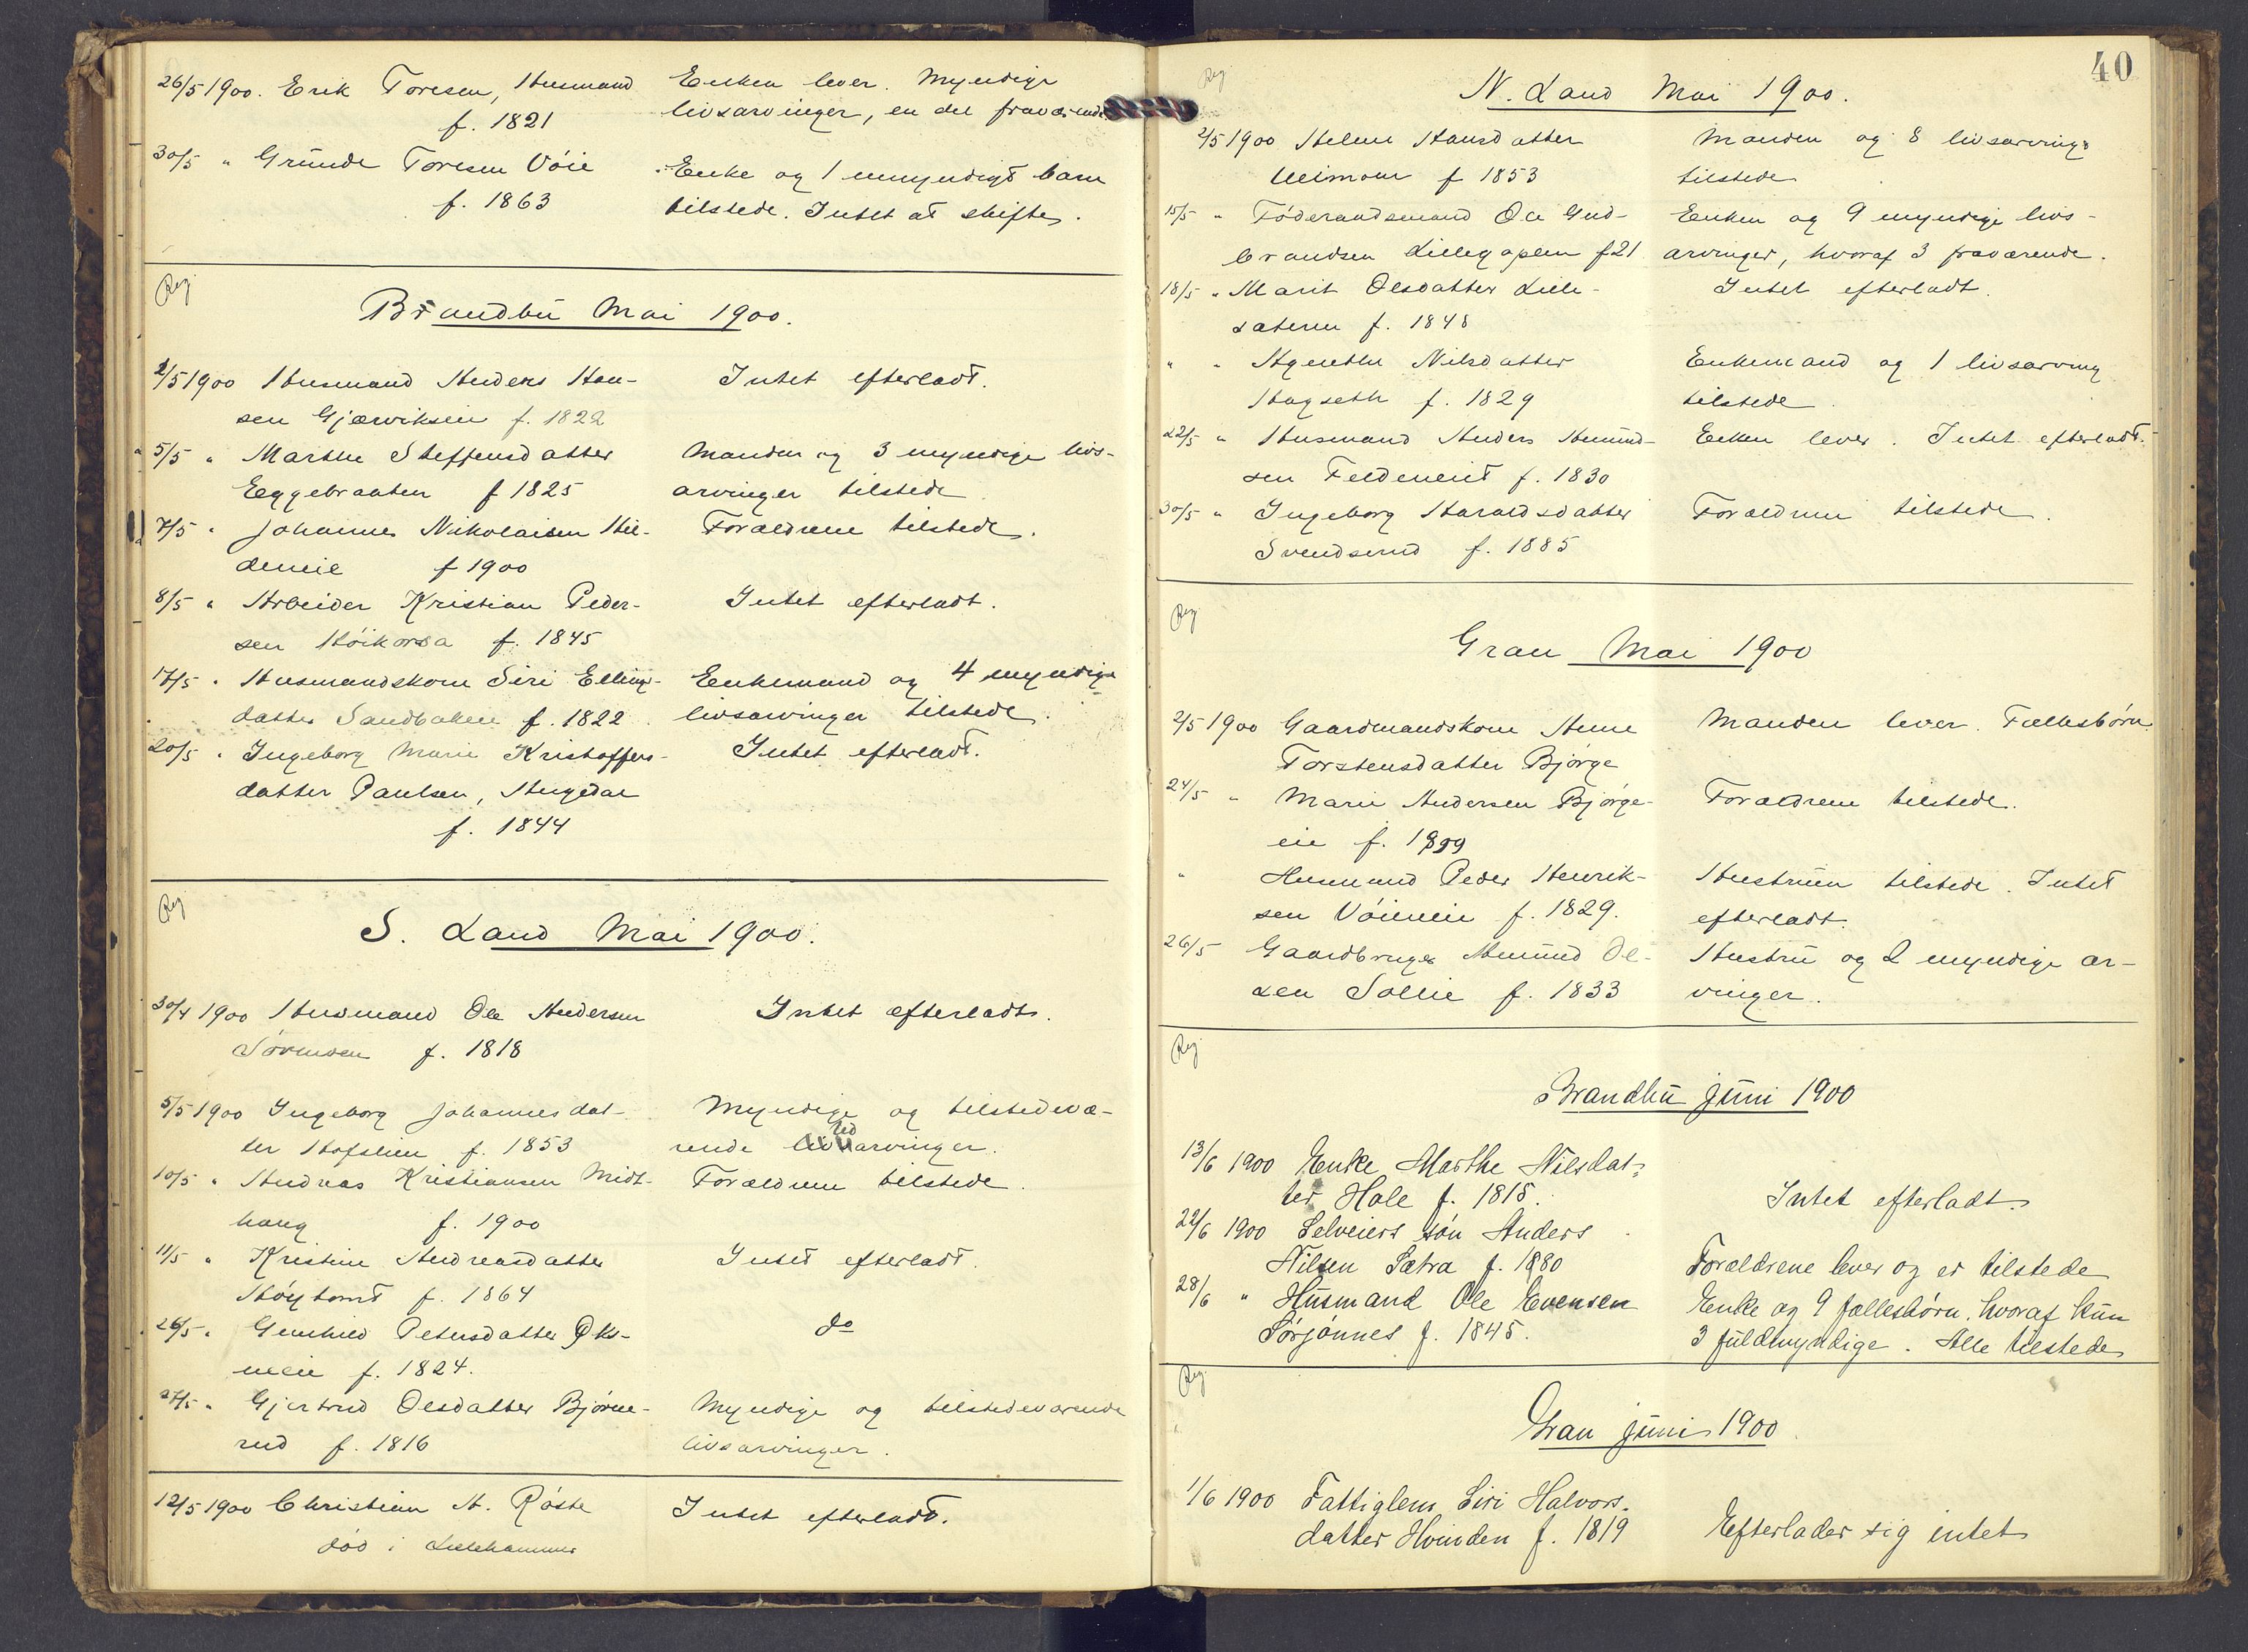 26/5 1900. Erik Toresen, Husmand Enken lever. Myndige
f. 1821 livsarvinger, en del fraværende
30/5 " Grunde Toresen Vøie Enke og 1 umyndigt barn
f. 1863 tilstede. Intet at skifte.
Reg
Brandbu Mai 1900.
2/5 1900 Husmand Anders Han- Intet efterladt.
sen Gjærviksein f. 1822
5/5 " Marthe Steffensdatter Manden og 3 myndige livs-
Eggebraaten f 1825 arvinger tilstede
7/5 " Johannes Nikolaisen Hil- Forældrene tilstede.
deneie f 1900
8/5 " Arbeider Kristian Peder- Intet efterladt.
sen Høikorsa f. 1845
17/5 " Husmandskone Siri Ellings- Enkemand og 4 myndige
datter Sandbakken f. 1822 livsarvinger tilstede.
20/5 " Ingeborg Marie Kristoffers- Intet efterladt.
datter Paulsen, Augedal
f. 1844
Reg
S. Land Mai 1900.
30/4 1900 Husmand Ole Andersen Intet efterladt.
f. 1818
5/5 1900 Ingeborg Johannesdat- Myndige og tilstedevæ-
ter Hofslien f. 1853 rende arvinger.
10/5 " Andreas Kristiansen Midt- Forældrene tilstede.
haug f. 1900
11/5 " Kristine Andreasdatter Intet efterladt.
Høytomt f. 1864
26/5 " Gunhild Petersdatter Øks- do
neie f. 1824.
27/5 " Gjertrud Olsdatter Bjørne- Myndige og tilstedeværende
rud f. 1816 livsarvinger.
12/5 1900 Christian A. Røste Intet efterladt.
død i Lillehammer
40
Reg
N. Land Mai 1900.
2/5 1900 Helene Hansdatter Manden og 8 livsarvinge
f 1853 tilstede
15/5 " Føderaadsmand Ole Gud- Enken og 9 myndige livs-
brandsen f 21 arvinger, hvoraf 3 fraværende.
18/5 " Marit Olsdatter Lille- Intet efterladt.
sæteren f. 1848
" " Agnethe Nilsdatter Enkemand og 1 livsarving
Hagseth f. 1829 tilstede
22/5 " Husmand Anders Amund- Enken lever. Intet efterladt.
sen f. 1830
30/5 " Ingeborg Haraldsdatter Forældrene tilstede.
Svendsrud f. 1885
Reg
Gran Mai 1900
2/5 1900 Gaardmandskone Anne Manden lever. Fællesbørn.
Torstensdatter Bjørge
24/5 " Marie Andersen Bjørge- Forældrene tilstede.
eie f. 1899
" Husmand Peder Henrik- Hustruen tilstede. Intet
sen Vøieneie f. 1829. efterladt.
26/5 Gaardbruger Amund Ol- Hustru og 2 myndige ar-
sen Sollie f. 1833 vinger.
Reg
Brandbu juni 1900
13/6 1900 Enke Marthe Nilsdat-
ter Hole f. 1815. Intet efterladt.
22/6 1900 Selveiers søn Anders
Nilsen Sætra f. 1880 Forældrene lever og er tilstede
28/6 " Husmand Ole Evensen Enke og 9 fællesbørn, hvoraf kun
Sørjønnes f. 1845. 3 fuldmyndige. Alle tilstede
Reg
Gran juni 1900
1/6 1900 Fattiglem Siri Halvors-
datter Hvinden f. 1819 Efterlader sig intet